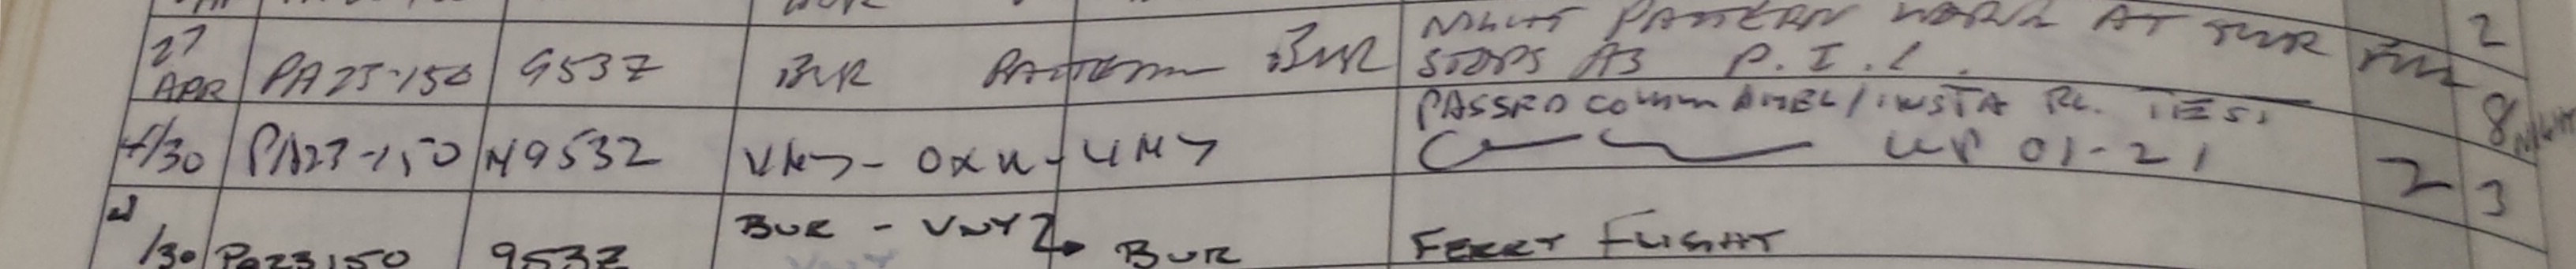 NIGHT PATTERN WORK AT BUR FULL 2
27 APR PA23-150 953Z BUR PATTERN BUR STOPS AS P.I.C.
PASSED COMM AMEL/INSTA RE. TEST 8 NIGHT
4/30 PA23-150 N9532 VNY-OXR-VNY 01-21 2 3
/30 PA23150 953Z BUR - VNY BUR FERRY FLIGHT